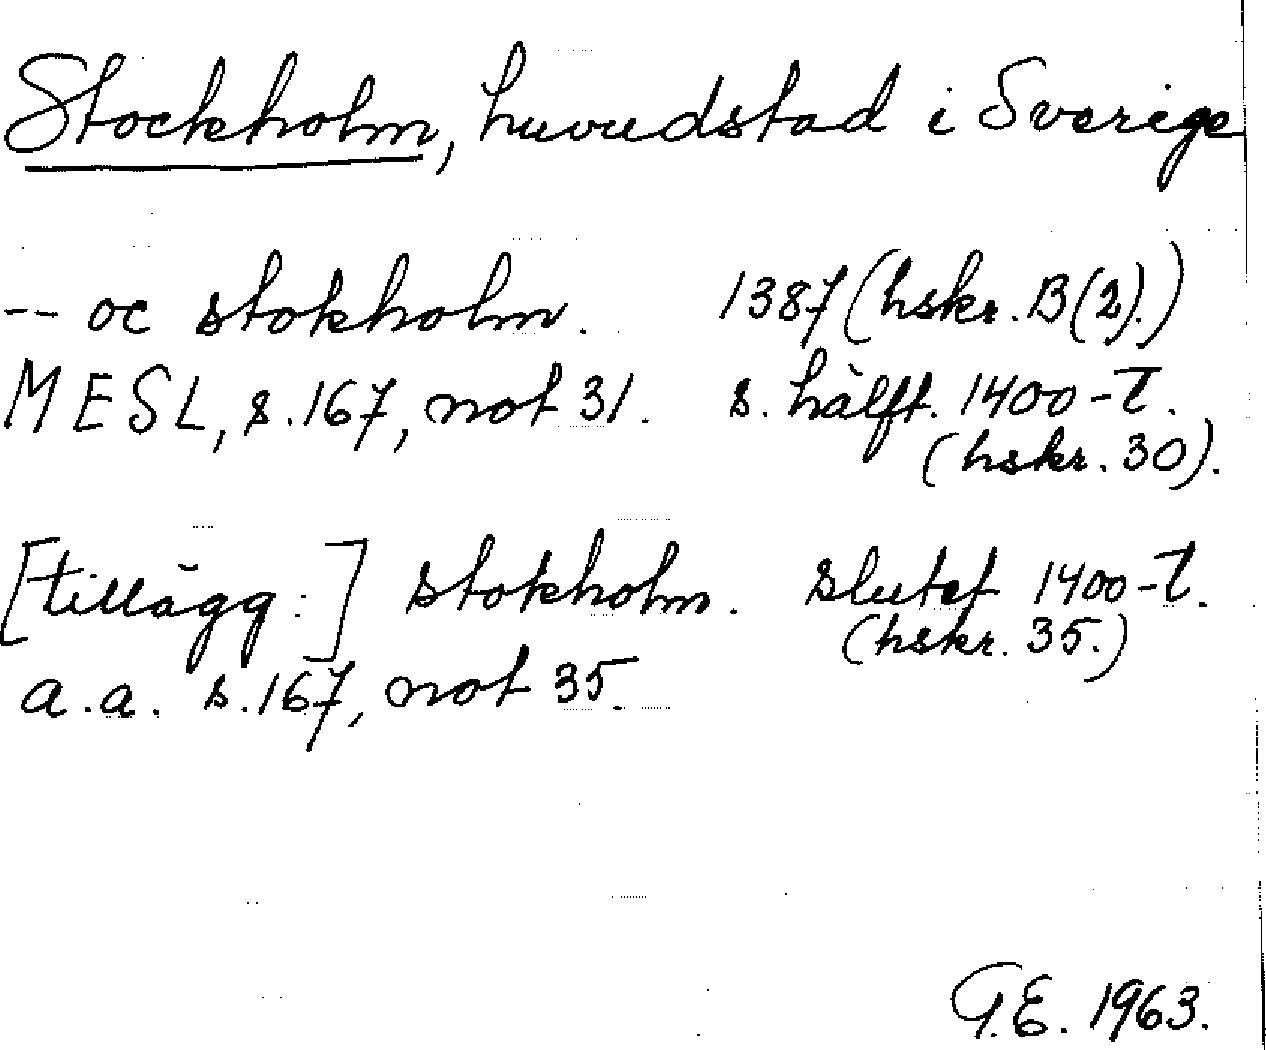 Stockholm, huvudstad i Sverige
-- oc stokholm. 1387 (hskr. B(2).)
MESL, s. 167, not 31. s. hälft. 1400-t.
(hskr. 30).
[tillägg:] stokholm. slutet 1400-t.
(hskr. 35.)
a.a. s. 167, not 35.
G.E. 1963.